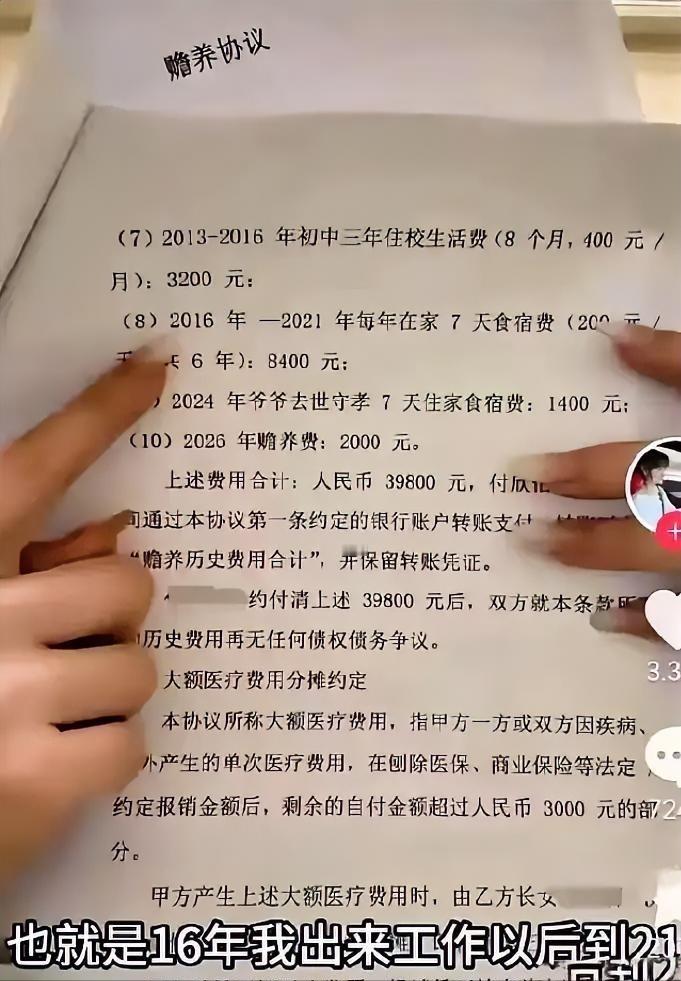 赡养协议
(7) 2013-2016 年初中三年住校生活费(8 个月, 400 元 /
月): 3200 元;
(8) 2016 年 —2021 年每年在家 7 天食宿费 (200 元 /
共 6 年): 8400 元;
2024 年爷爷去世守孝 7 天住家食宿费: 1400 元;
(10) 2026 年赡养费: 2000 元。
上述费用合计: 人民币 39800 元, 付欣
间通过本协议第一条约定的银行账户转账支付
“赡养历史费用合计”, 并保留转账凭证。
约付清上述 39800 元后, 双方就本条款所
历史费用再无任何债权债务争议。
大额医疗费用分摊约定
本协议所称大额医疗费用, 指甲方一方或双方因疾病、
外产生的单次医疗费用, 在刨除医保、商业保险等法定
约定报销金额后, 剩余的自付金额超过人民币 3000 元的部
分。
甲方产生上述大额医疗费用时, 由乙方长女
3.3
724
也就是16年我出来工作以后到21